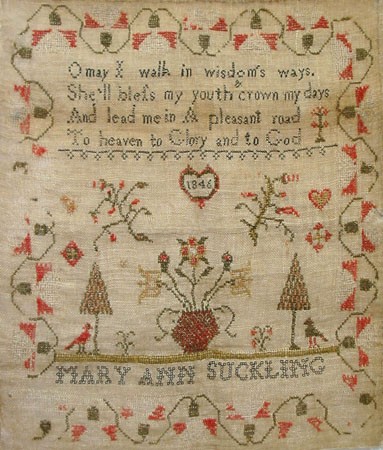 O may I walk in wisdom's ways.
She'll bleſs my youth & crown my days
And lead me in A pleasant road
To heaven to Glory and to God
1846
MARY ANN SUCKLING